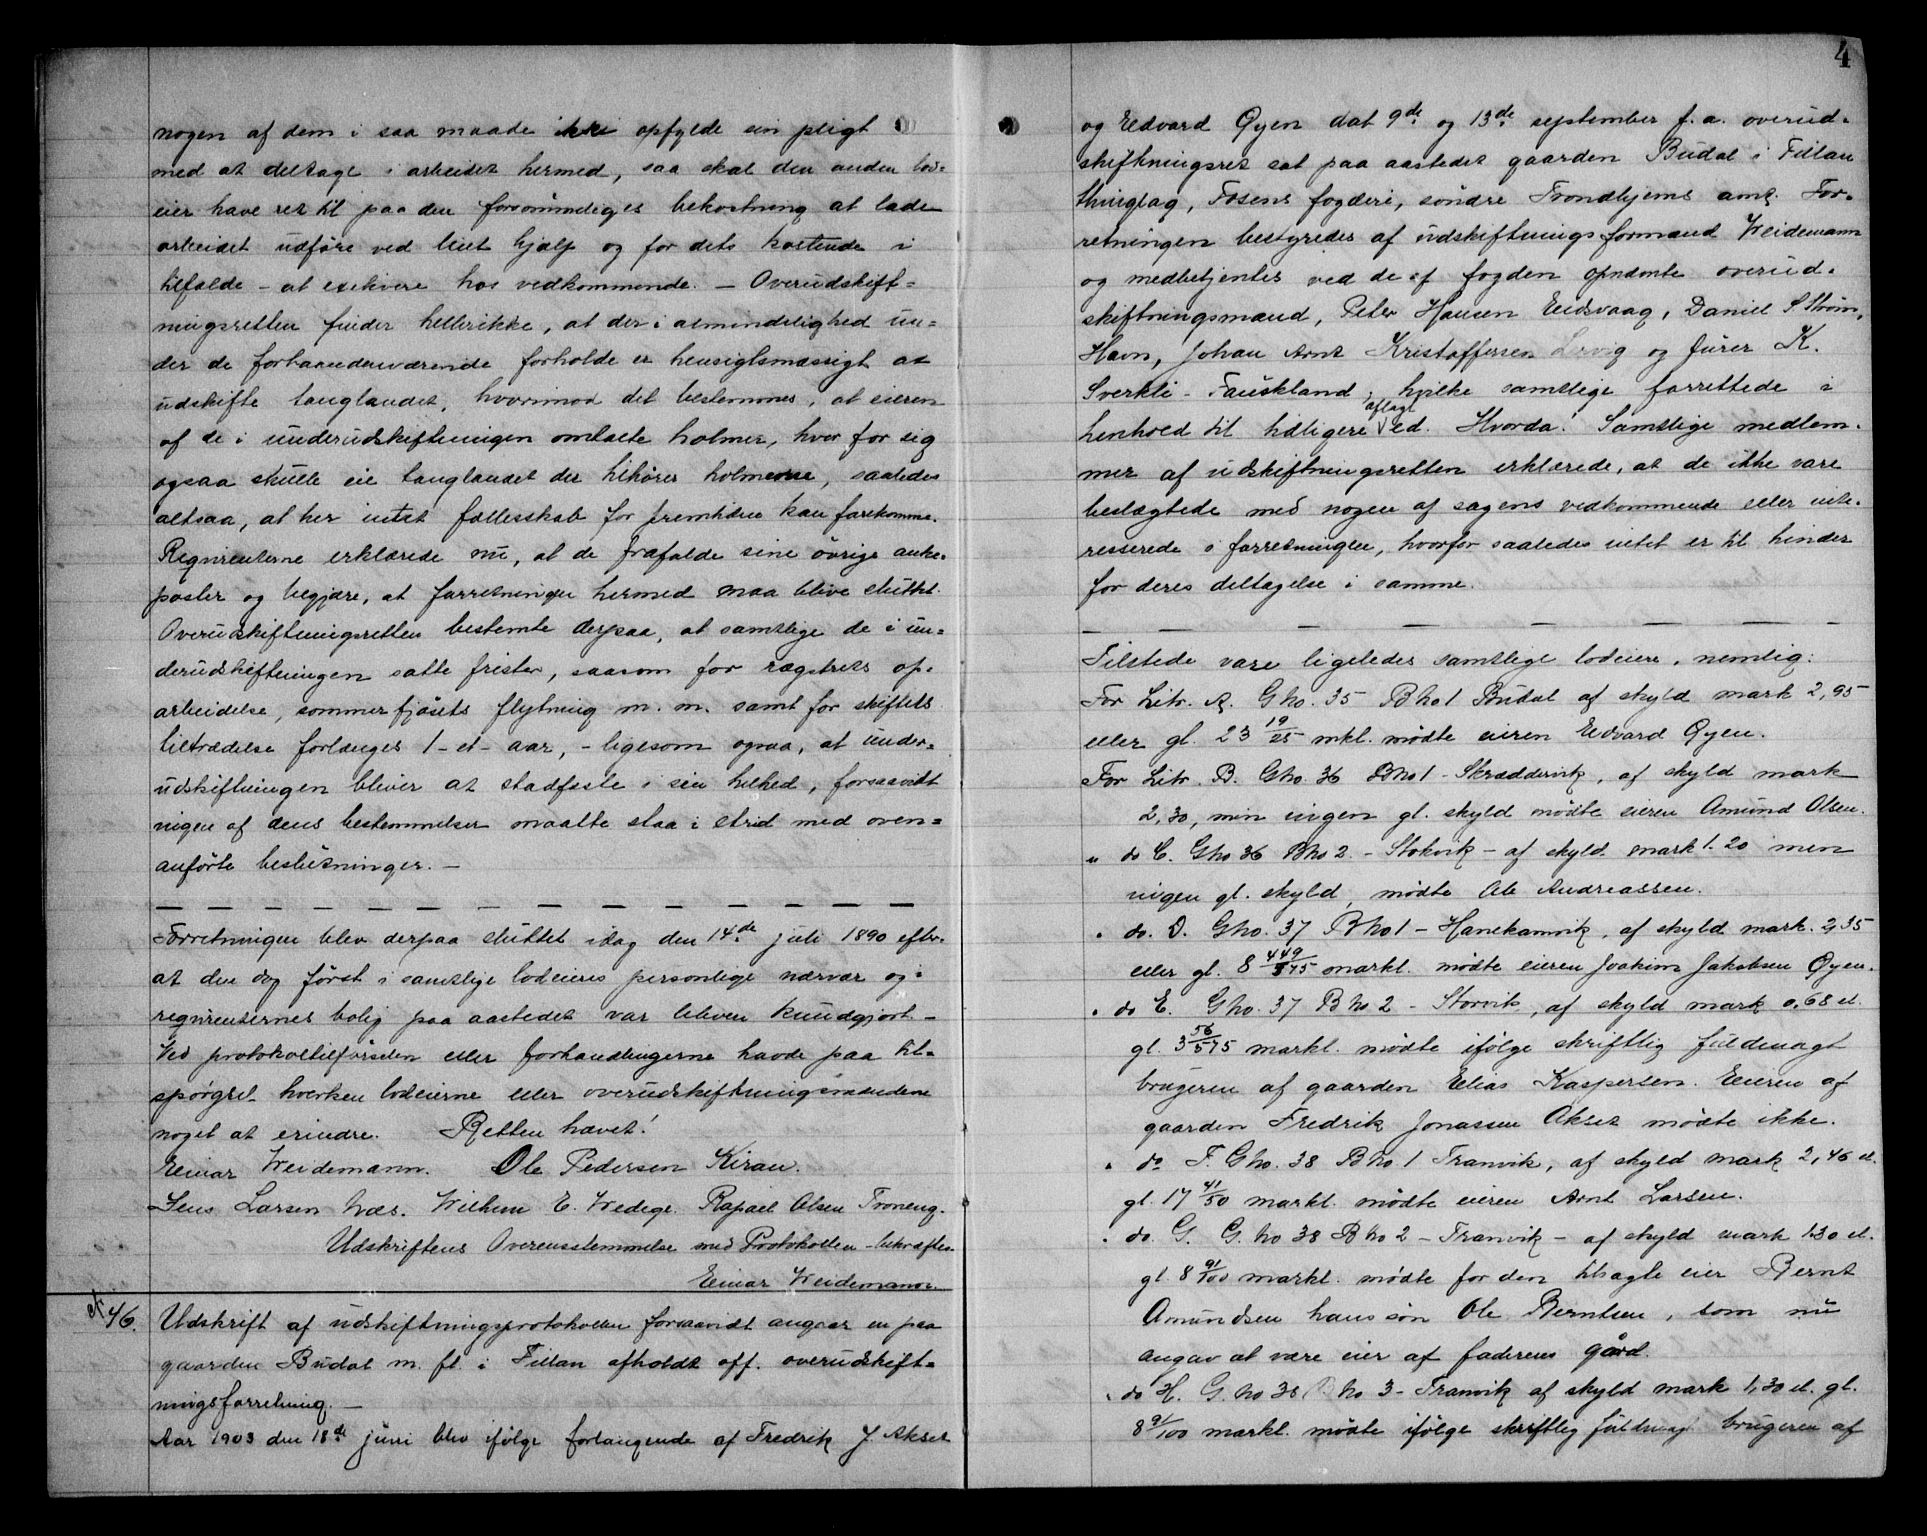 nogen af dem i saa maade ikke opfylde sin pligt
med at deltage i arbeidet hermed, saa skal den anden lod-
eier have ret til paa den forsømmeliges bekostning at lade
arbeidet udføre ved leiet hjælp og for dets kostende i
tilfælde - at exekvere hos vedkommende. - Overudskift-
ningsretten finder hellerikke, at der i almindelighed un-
der de forhaandenværende forholde er hensigtsmæssigt at
udskifte tanglandet, hvorimod det bestemmes, at eieren
af de i underudskiftningen omtalte holmer, hver for sig
ogsaa skulle eie tanglandet der tilhører holmerne, saaledes
altsaa, at her intet fællesskab for fremtiden kan forekomme.
Requirenterne erklærede nu, at de frafalde sine øvrige anke-
poster og begjære, at forretningen hermed maa blive sluttet.
Overudskiftningsretten bestemte derpaa, at samtlige de i un-
derudskiftningen satte frister, saasom for røgstrets op-
arbeidelse, sommerfjøsets flytning m. m. samt for skiftets
tiltrædelse forlænges 1 - et - aar, - ligesom ogsaa, at under-
udskiftningen bliver at stadfæste i sin helhed, forsaavidt
ingen af dens bestemmelser maatte staa i strid med oven-
anførte beslutninger. -
Forretningen blev derpaa sluttet idag den 14de juli 1890 efter-
at den dog først i samtlige lodeieres personlige nærvær og i
requirenternes bolig paa aastedet var bleven kundgjort. -
Ved protokoltilførselen eller forhandlingerne havde paa til-
spørgsel hverken lodeierne eller overudskiftningsmændene
noget at erindre. Retten hævet!
Einar Weidemann. Ole Pedersen Kiran.
Jens Larsen Næs. Wilhem E. Wedege. Rapael Olsen Troneng.
Udskriftens Overensstemmelse med Protokollen bekræftes
Einar Weidemann.
No 46. Udskrift af udskiftningsprotokollen forsaavidt angaar en paa
gaarden Budal m. fl. i Fillan afholdt off. overudskift-
ningsforretning. -
Aar 1903 den 18de juni blev ifølge forlangende af Fredrik J. Akset
4
og Edvard Øyen dat 9de og 13de september f. a. overud-
skiftningsret sat paa aastedet gaarden Budal i Fillan
thinglag, Fosens fogderi, søndre Trondhjems amt. For-
retningen bestyredes af udskiftningsformand Weidemann
og medbetjentes ved de af fogden opnævnte overud-
skiftningsmænd, Peter Hansen Eidsvaag, Daniel S Strøm,
Havn, Johan Arnt Kristoffersen Lervig og Fürer K.
Sverkli - Fauskland, hvilke samtlige forrettede i
henhold til tidligere aflagt ed. Hvorda! Samtlige medlem-
mer af udskiftningsretten erklærede, at de ikke vare
beslægtede med nogen af sagens vedkommende eller inte-
resserede i forretningen, hvorfor saaledes intet er til hinder
for deres deltagelse i samme.
Tilstede vare ligeledes samtlige lodeiere, nemlig:
For Litr. A. Gno. 35 Bno 1 Budal af skyld mark 2,95
eller gl. 23 19/25 mkl. mødte eieren Edvard Øyen.
For Litr. B. Gno. 36 Bno 1 - Skræddervik, af skyld mark
2,30, men ingen gl. skyld mødte eieren Amund Olsen.
" do C. Gno 36 Bno 2. - Stokvik - af skyld mark 1.20 men
ingen gl. skyld, mødte Ole Andreassen.
" do. D. Gno. 37 Bno 1 - Hanekamvik, af skyld mark. 2,35
eller gl. 8 449/575 markl. mødte eieren Joakim Jakobsen Øyen.
" do E. Gno. 37 Bno 2 - Storvik, af skyld mark 0,68 el.
gl. 3 56/575 markl. mødte ifølge skriftlig fuldmagt
brugeren af gaarden Elias Kaspersen. Eieren af
gaarden Fredrik Jonassen Akset mødte ikke.
" do F. Gno. 38 Bno. 1 Tranvik, af skyld mark 2,46 el.
gl. 17 41/50 markl. mødte eieren Arnt Larsen.
" do. G. G. no 38 Bno 2 - Tranvik - af skyld mark 1.30 el.
gl. 8 91/100 markl. mødte for den thinglæste eier Bernt
Amundsen hans søn Ole Berntsen, som nu
angav at være eier af faderens gård.
" do H. G. no 38 Bno 3 - Tranvik af skyld mark 1,30 el. gl.
8 91/100 markl. mødte ifølge skriftlig fuldmagt brugeren af